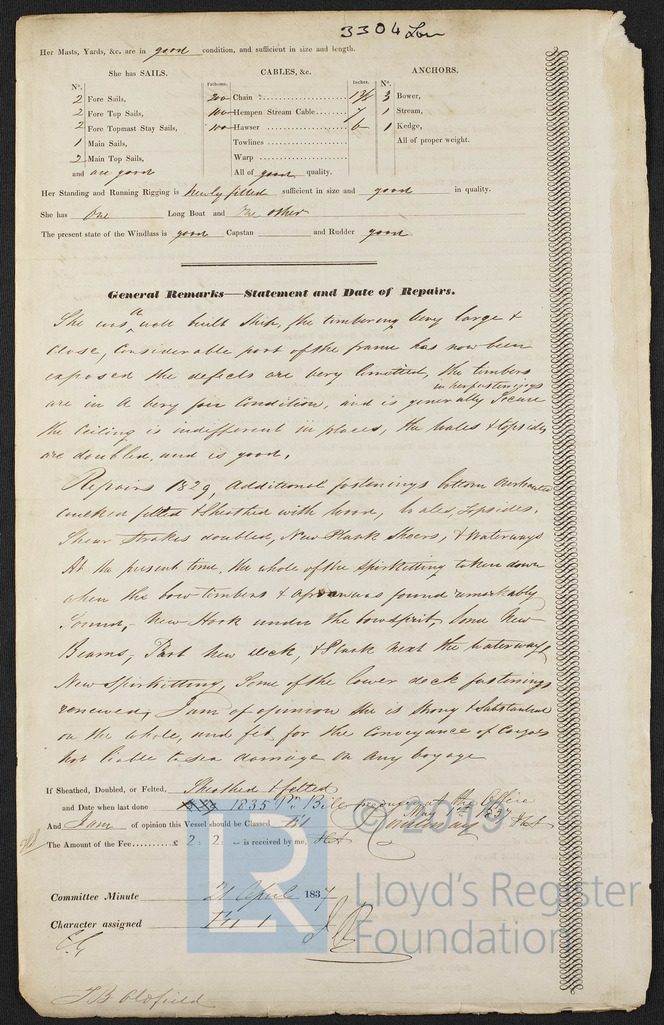 3304 Lon
Her Masts, Yards, &c. are in good condition, and sufficient in size and length.
She has SAILS.
Nº.
2 Fore Sails,
2 Fore Top Sails,
2 Fore Topmast Stay Sails,
1 Main Sails,
2 Main Top Sails,
and are good
CABLES, &c.
Fathoms. Inches.
200 Chain 1 3/8
100 Hempen Stream Cable 7
100 Hawser 6
Towlines
Warp
All of good quality.
ANCHORS.
Nº.
3 Bower,
1 Stream,
1 Kedge,
All of proper weight.
Her Standing and Running Rigging is newly fitted sufficient in size and good in quality.
She has One Long Boat and one other
The present state of the Windlass is good Capstan and Rudder good
General Remarks—Statement and Date of Repairs.
She was a well built Ship, the timbering very large &
close, Considerable part of the frame has now been
exposed the defects are very limitted, the timbers
in her fastenings
are in a very fair Condition, and is generally Secure
the Ceiling is indifferent in places, the wales & topsides
are doubled, and is good.
Repairs 1829, Additional fastenings bottom
caulked felted & Sheathed with wood, Wales, Topsides,
Shear Strakes doubled, New Plank Sheers, & Waterways
At the present time, the whole of the Spirkitting taken down
when the bow timbers & apron was found remarkably
Sound, New Hook under the bowsprit, Some New
Beams, Part New deck, & Plank next the waterways,
New Spirkitting, Some of the lower deck fastenings
renewed, I am of opinion she is Strong & Substantial
on the whole, and fit for the Conveyance of Cargoes
not liable to sea damage on any voyage
If Sheathed, Doubled, or Felted, Sheathed & felted
and Date when last done 1835 Pr. Bill at the Office
May 1837
And I am of opinion this Vessel should be Classed Æ1
The Amount of the Fee £ 2 : 2 : – is received by me,
Committee Minute 21 April 1837
Character assigned Æ 1
T B Oldfield
© 2019
LR
Lloyd's Register
Foundation